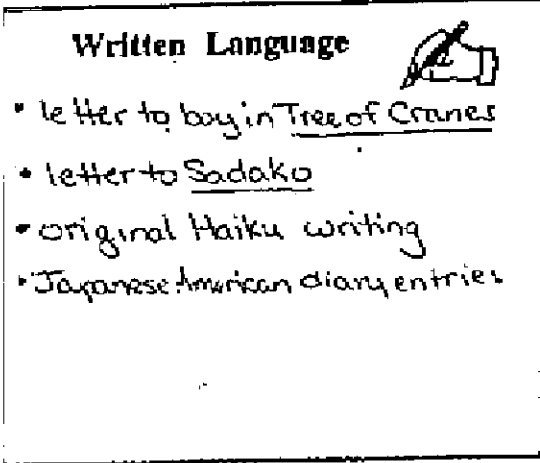 Written Language
• letter to boy in Tree of Cranes
• letter to Sadako
• original Haiku writing
• Japanese American diary entries